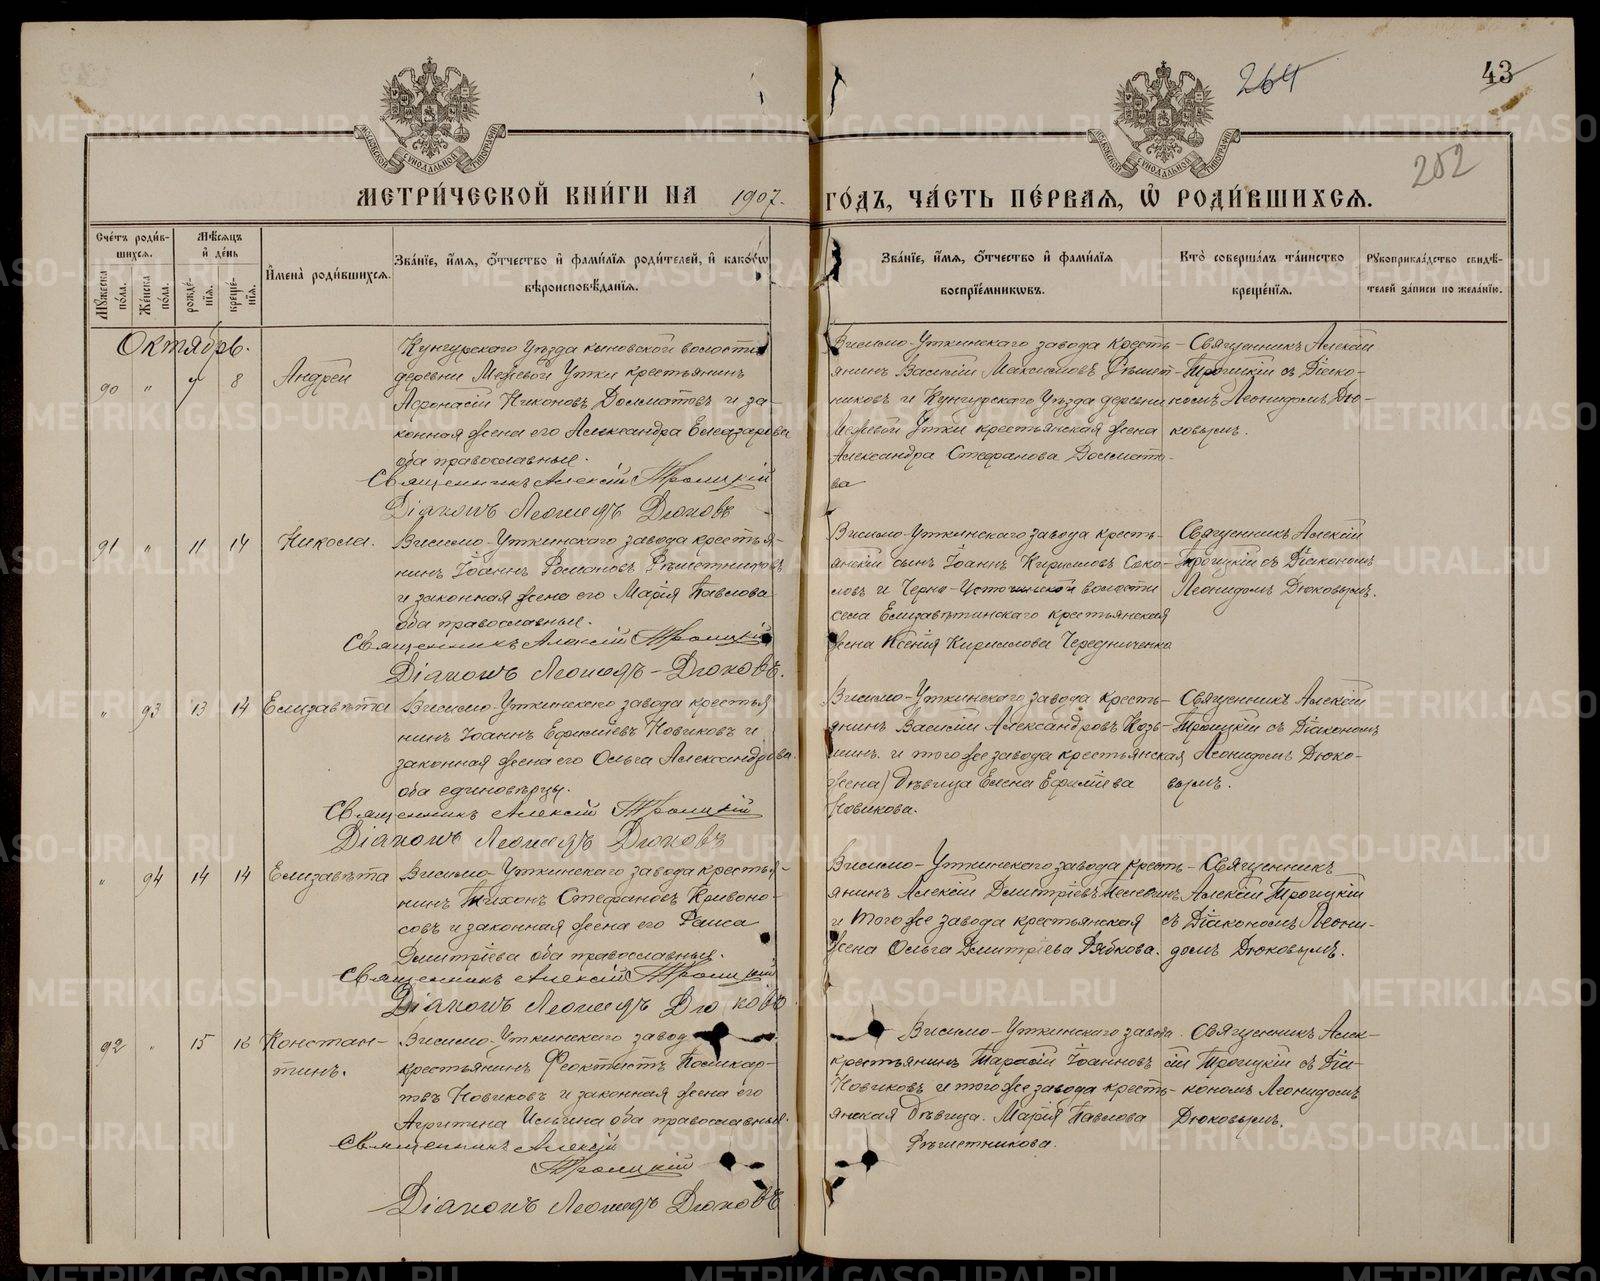 264
43
202
МОСКОВСКОЙ СѴНОДАЛЬНОЙ ТИПОГРАФІИ
МОСКОВСКОЙ СѴНОДАЛЬНОЙ ТИПОГРАФІИ
МЕТРИ́ЧЕСКОЙ КНИ́ГИ НА 1907. ГО́ДЪ, ЧА́СТЬ ПЕ́РВАЯ, Ѡ҆ РОДИ́ВШИХСЯ.
Сче́тъ роди́в-
шихся.
Мꙋ́жеска по́ла.
Же́нска по́ла.
Мѣ́сяцъ
и҆ де́нь
рожде́-
нїя.
креще́-
нїя.
И҆мена̀ роди́вшихся.
Зва́нїе, и҆́мя, ѻ҆́тчество и҆ фами́лїя роди́телей, и҆ како́гѡ
вѣроисповѣ́данїя.
Зва́нїе, и҆́мя, ѻ҆́тчество и҆ фами́лїя
воспрїе́мникѡвъ.
Кто̀ соверша́лъ та́инство
креще́нїя.
Рꙋкоприкла́дство свидѣ́-
телей за́писи по жела́нїю.
Октябрь.
90 " 7 8 Андрей
Кунгурскаго Уѣзда кыновской волости
деревни Межевой Утки крестьянинъ
Афонасій Никоновъ Долматовъ и за-
конная жена его Александра Елеазарова
оба православные.
Священникъ Алексій Троицкій
Діаконъ Леонидъ Дюковъ
Висимо-Уткинскаго завода кресть-
янинъ Василій Максимовъ Рѣшет-
никовъ и Кунгурскаго Уѣзда деревни
Межевой Утки крестьянская жена
Александра Стефанова Долмато-
ва
Священникъ Алексій
Троицкій съ Діако-
номъ Леонидомъ Дю-
ковымъ.
91 " 11 14 Никола.
Висимо-Уткинскаго завода крестья-
нинъ Іоаннъ Романовъ Рѣшетниковъ
и законная жена его Марія Павлова
оба православные.
Священникъ Алексій Троицкій
Діаконъ Леонидъ Дюковъ.
Висимо-Уткинскаго завода кресть-
янскій сынъ Іоаннъ Кириловъ Соко-
ловъ и Черно-Источинской волости
села Елизаветинскаго крестьянская
жена Ксенія Кирилова Чередниченко
Священникъ Алексій
Троицкій съ Діакономъ
Леонидомъ Дюковымъ.
" 93 13 14 Елизавѣта
Висимо-Уткинскаго завода крестья
нинъ Іоаннъ Ефимиевъ Новиковъ и
законная жена его Ольга Александрова.
оба единовѣрцы.
Священникъ Алексій Троицкій
Діаконъ Леонидъ Дюковъ
Висимо-Уткинскаго завода кресть-
янинъ Василій Александровъ Козь-
минъ. и того же завода крестьянская
жена) дѣвица Елена Ефиміева
Новикова.
Священникъ Алексій
Троицкій съ Діакономъ
Леонидомъ Дюко-
вымъ.
" 94 14 14 Елизавѣта
Висимо-Уткинскаго завода крестья-
нинъ Тихонъ Стефановъ Кривоно-
совъ и законная жена его Раиса
Дмитріева оба православные.
Священникъ Алексій Троицкій
Діаконъ Леонидъ Дюковъ
Висимо-Уткинскаго завода кресть-
янинъ Алексій Дмитріевъ
и того же завода крестьянская
жена Ольга Дмитріева Рябкова.
Священникъ
Алексій Троицкій
съ Діакономъ Леони-
домъ Дюковымъ.
92 " 15 16 Констан-
тинъ.
Висимо-Уткинскаго завод
крестьянинъ Феоктистъ Поликар-
повъ Новиковъ и законная жена его
Агрипина Ильина оба православные.
Священникъ Алексій
Троицкій
Діаконъ Леонидъ Дюковъ
Висимо-Уткинскаго завода
крестьянинъ Тарасій Іоанновъ
Новиковъ и того же завода кресть-
янская дѣвица. Марія Павлова
Рѣшетникова.
Священникъ Алек-
сій Троицкій съ Діа-
кономъ Леонидомъ
Дюковымъ.
METRIKI.GASO-URAL.RU